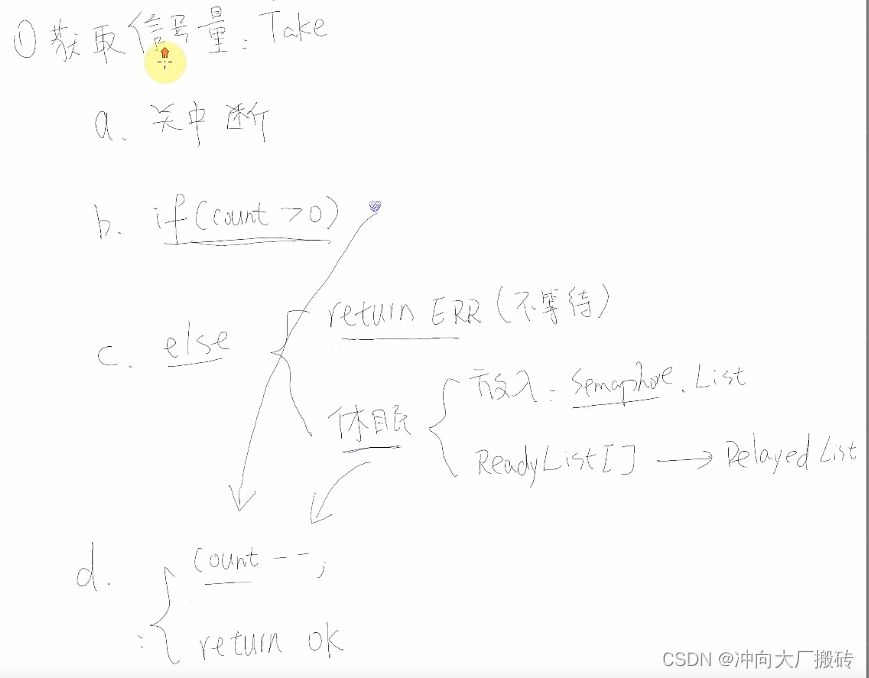 ① 获取信号量：Take
a. 关中断
b. if(count >0)
c. else
return ERR (不等待)
休眠
放入：Semaphore.List
ReadyList[] → DelayedList
d. count--;
return ok
CSDN @冲向大厂搬砖